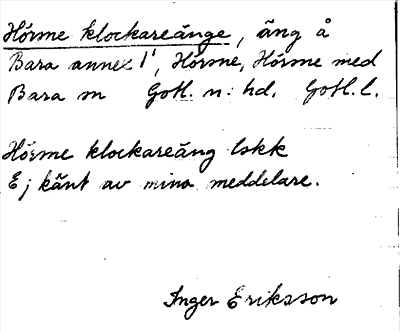 Hörsne klockareänge, äng å
Bara annex 1¹, Hörsne, Hörsne med
Bara sn Gotl. n: hd. Gotl. l.
Hörsne klockaräng lskk
Ej känt av mina meddelare.
Inger Eriksson